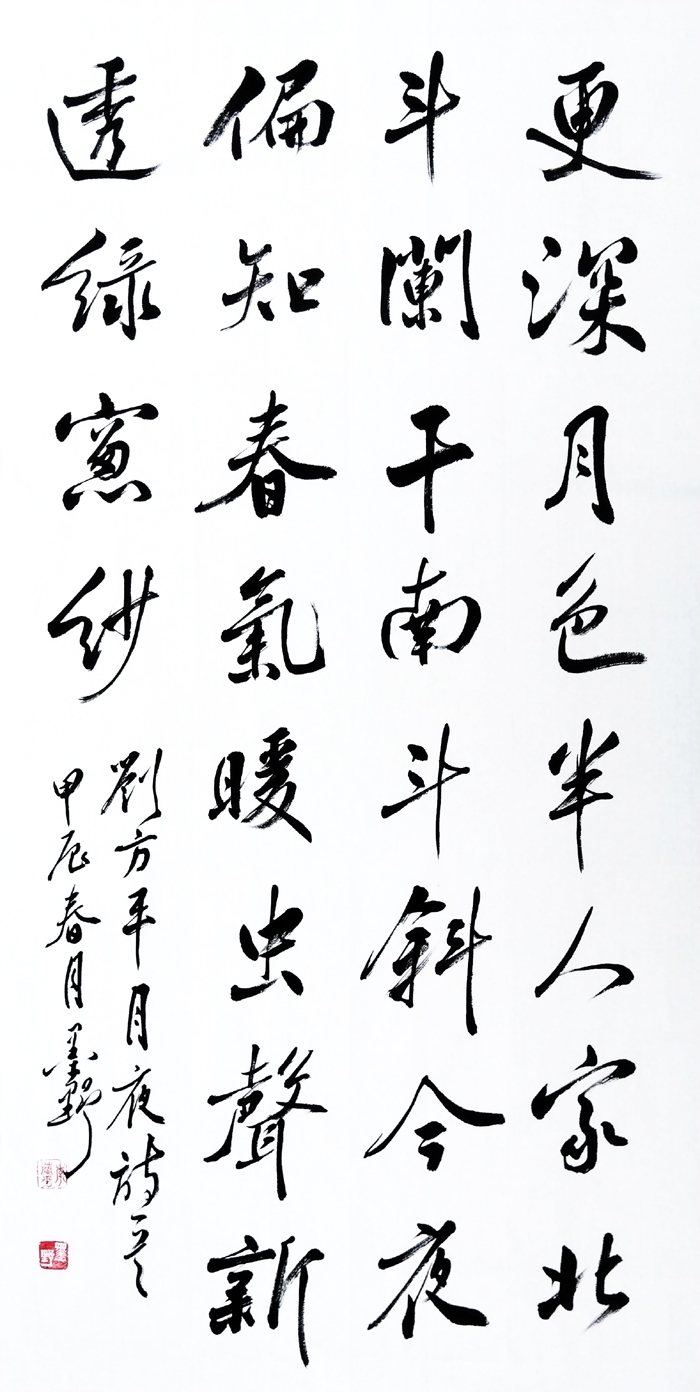 更深月色半人家北
斗闌干南斗斜今夜
偏知春氣暖虫聲新
透綠窻紗
劉方平月夜詩一首
甲辰春月墨野
墨野